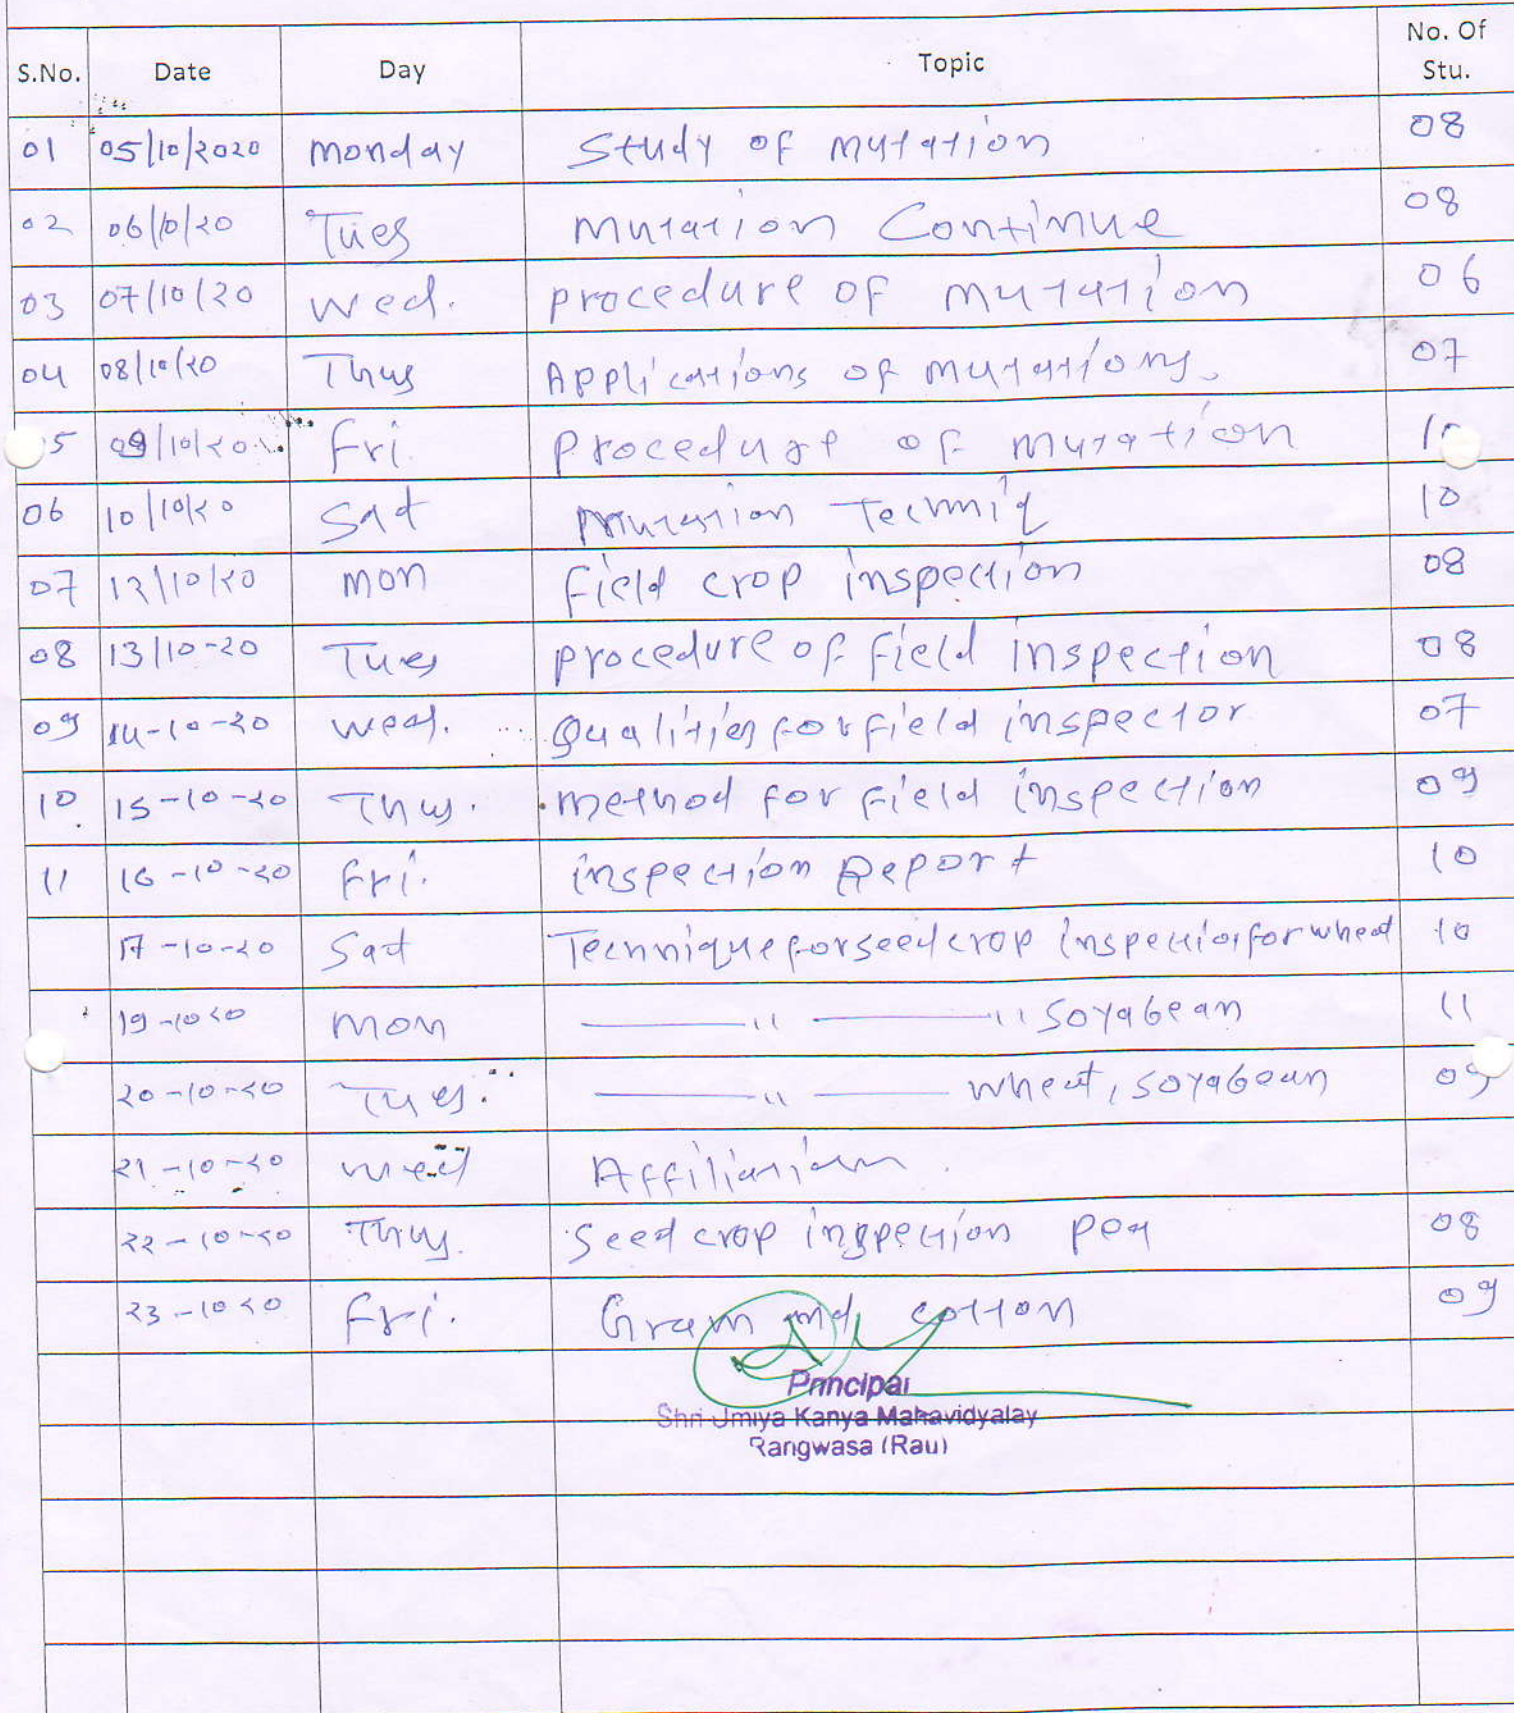 S.No. Date Day Topic No. Of Stu.
01 05/10/2020 Monday Study of mutation 08
02 06/10/20 Tues mutation Continue 08
03 07/10/20 Wed. procedure of mutation 06
04 08/10/20 Thus Applications of mutations. 07
5 09/10/20 Fri procedure of mutation
06 10/10/20 Sat mutation Techniq 10
07 12/10/20 mon Field crop inspection 08
08 13/10-20 Tues procedure of field inspection 08
09 14-10-20 wed. Qualities for field inspector 07
10 15-10-20 Thus. method for field inspection 09
11 16-10-20 Fri. inspection Report 10
17-10-20 Sat Technique for seed crop inspection for wheat 10
19-10 20 mon —— " —— " Soyabean 11
20-10-20 Tues. —— " —— wheat, soyabean 09
21-10-20 wed Affiliation.
22-10-20 Thus. Seed crop inspection pea 08
23-10 20 Fri. Gram and cotton 09
Principal
Shri Umiya Kanya Mahavidyalay
Rangwasa (Rau)